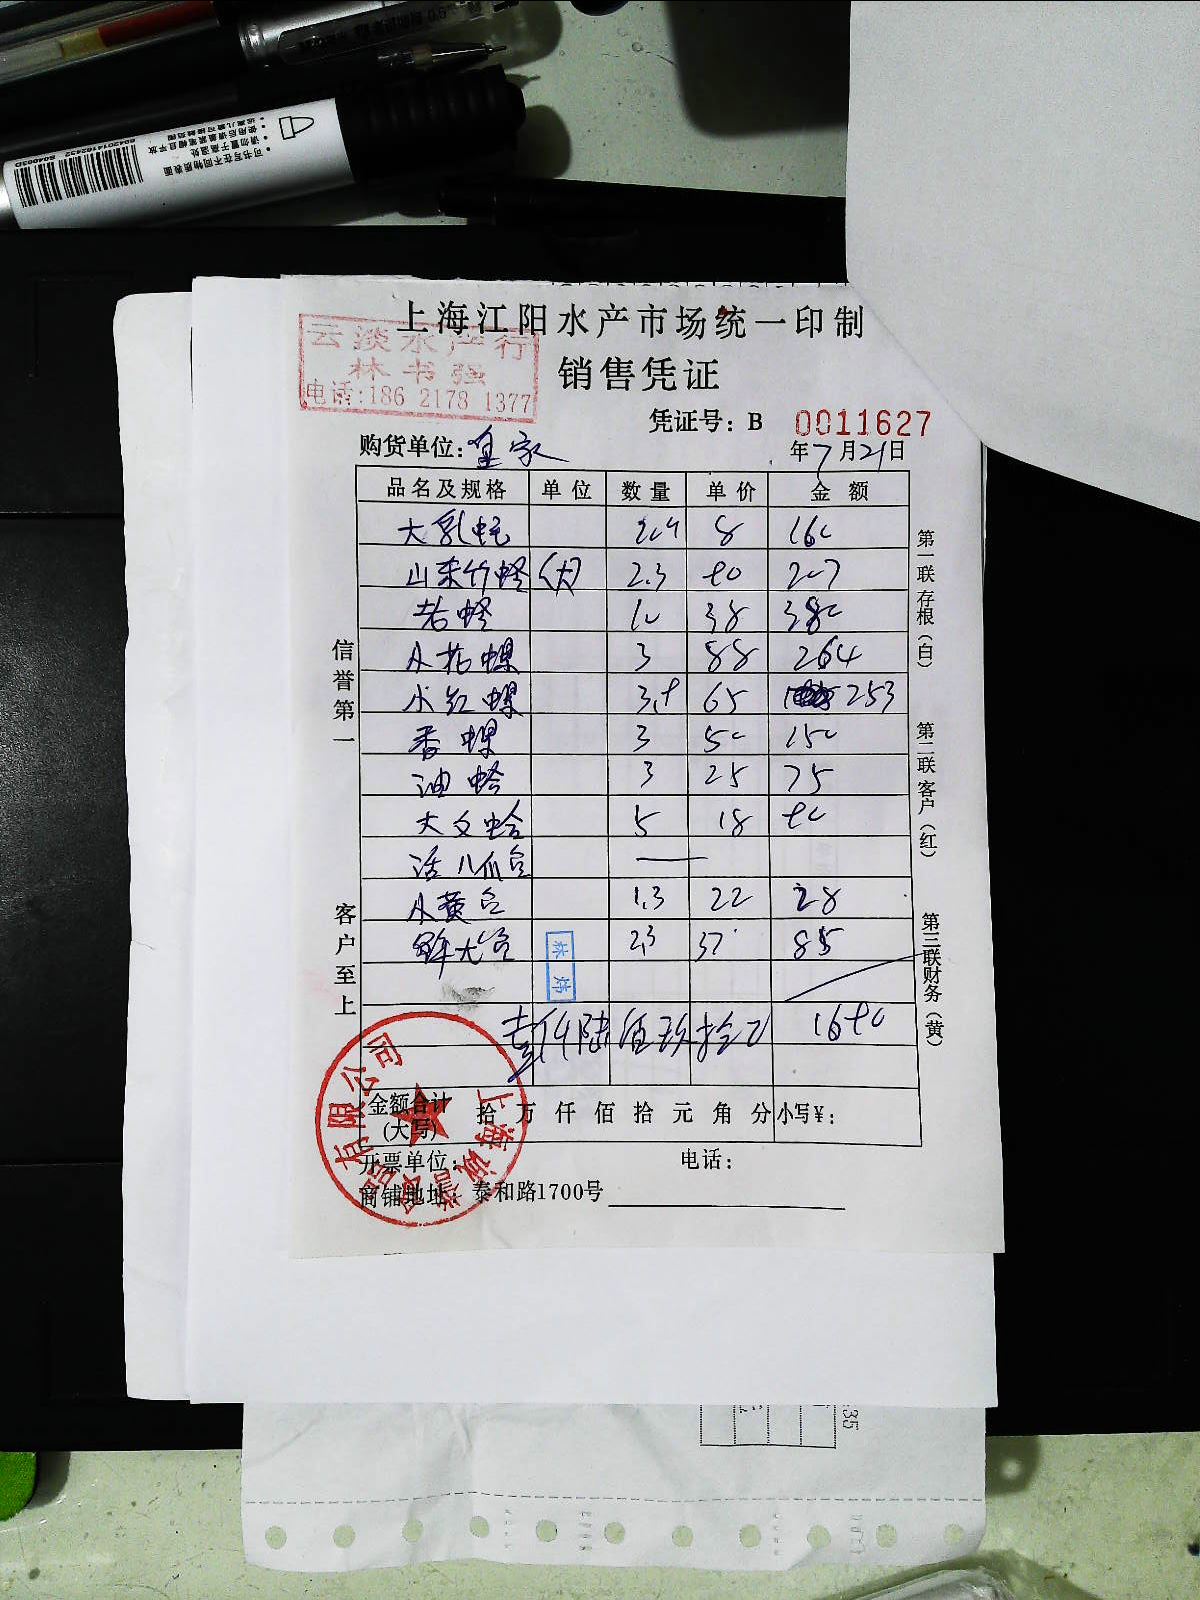 可书写在不同物质表面
请勿置于高温处
使用后请盖紧笔帽且平放
6042014162432 S04003D
上海江阳水产市场统一印制
云淡水产行
林书强
电话:186 2178 1377
销售凭证
凭证号: B 0011627
购货单位: 皇家 年7月21日
品名及规格 单位 数量 单价 金额
大乳蚝 20 8 160
山东竹蛏 (大) 2.3 90 207
老蛏 10 38 380
小花螺 3 88 264
小红螺 3.9 65 253
香螺 3 50 150
油蛤 3 25 75
大文蛤 5 18 90
活八爪鱼 —
小黄鱼 1.3 22 28
鲜尤鱼 2.3 37 85
林炜
壹仟陆佰玖拾元 1690
金额合计(大写) 拾 万 仟 佰 拾 元 角 分 小写¥:
开票单位: 电话:
商铺地址: 泰和路1700号
信誉第一
客户至上
第一联存根(白)
第二联客户(红)
第三联财务(黄)
.35